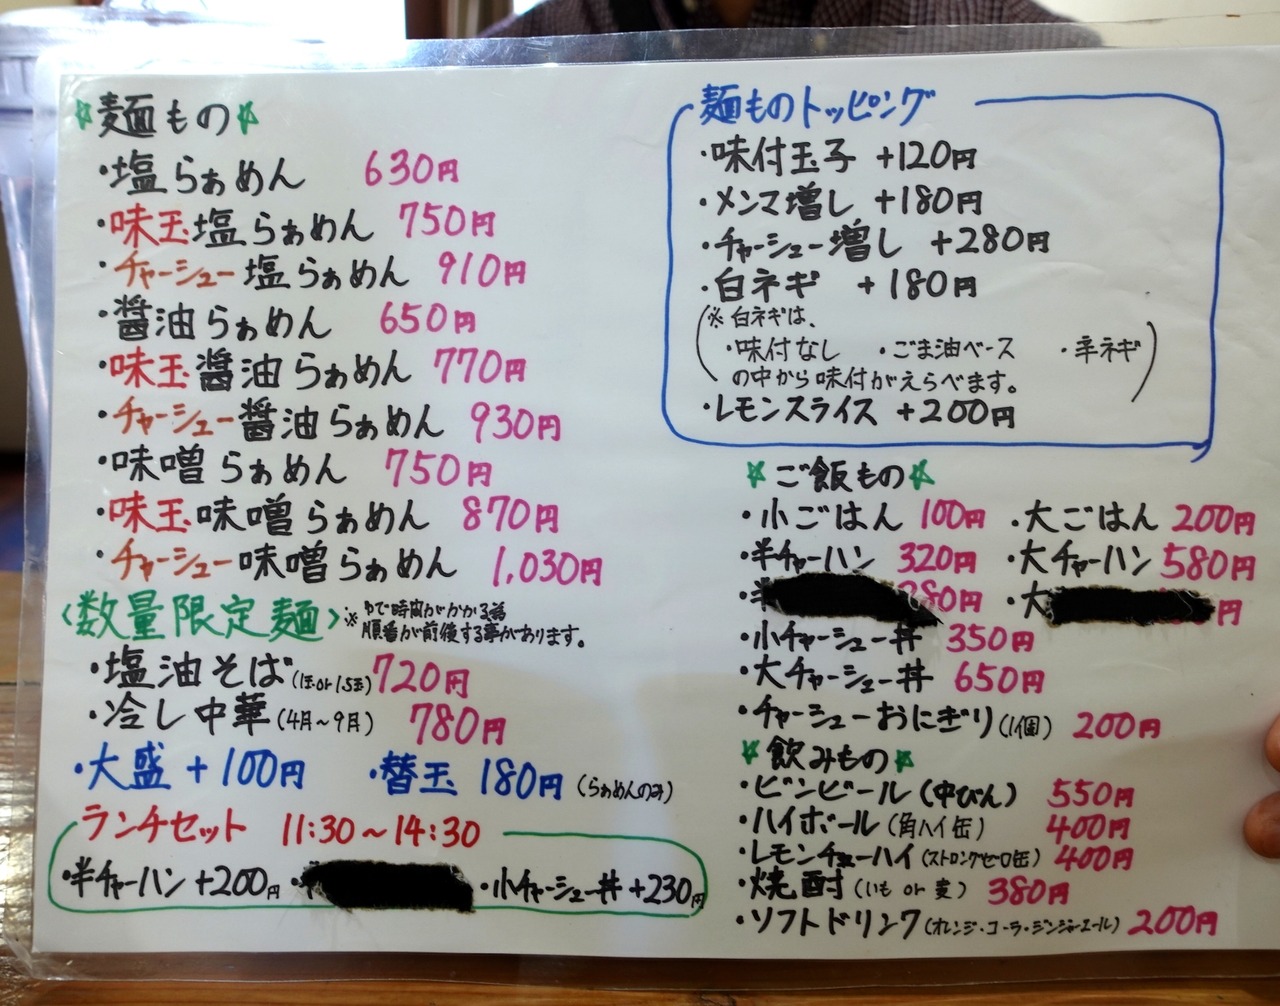 ☆麺もの☆
・塩らぁめん 630円
・味玉塩らぁめん 750円
・チャーシュー塩らぁめん 910円
・醤油らぁめん 650円
・味玉醤油らぁめん 770円
・チャーシュー醤油らぁめん 930円
・味噌らぁめん 750円
・味玉味噌らぁめん 870円
・チャーシュー味噌らぁめん 1,030円
〈数量限定麺〉
※ゆで時間がかかる為
順番が前後する事があります。
・塩油そば(1玉or1.5玉) 720円
・冷し中華(4月～9月) 780円
・大盛+100円 ・替玉 180円(らぁめんのみ)
ランチセット 11:30～14:30
・半チャーハン+200円 ・小チャーシュー丼+230円
麺ものトッピング
・味付玉子 +120円
・メンマ増し +180円
・チャーシュー増し +280円
・白ネギ +180円
(※白ネギは、
・味付なし ・ごま油ベース ・辛ネギ
の中から味付がえらべます。)
・レモンスライス +200円
☆ご飯もの☆
・小ごはん 100円 ・大ごはん 200円
・半チャーハン 320円 ・大チャーハン 580円
・半 280円 ・大 円
・小チャーシュー丼 350円
・大チャーシュー丼 650円
・チャーシューおにぎり(1個) 200円
☆飲みもの☆
・ビンビール(中びん) 550円
・ハイボール(角ハイ缶) 400円
・レモンチューハイ(ストロングゼロ缶) 400円
・焼酎(いも or 麦) 380円
・ソフトドリンク(オレンジ・コーラ・ジンジャーエール) 200円